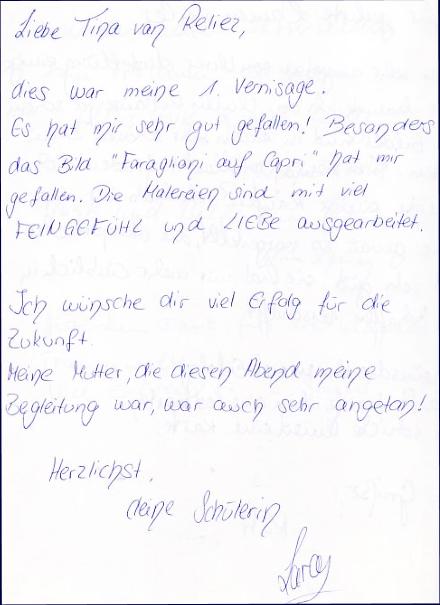 Liebe Tina van Reliez,
dies war meine 1. Vernisage!
Es hat mir sehr gut gefallen! Besonders
das Bild "Faraglioni auf Capri" hat mir
gefallen. Die Malereien sind mit viel
FEINGEFÜHL und LIEBE ausgearbeitet.
Ich wünsche dir viel Erfolg für die
Zukunft.
Meine Mutter, die diesen Abend meine
Begleitung war, war auch sehr angetan!
Herzlichst,
deine Schülerin